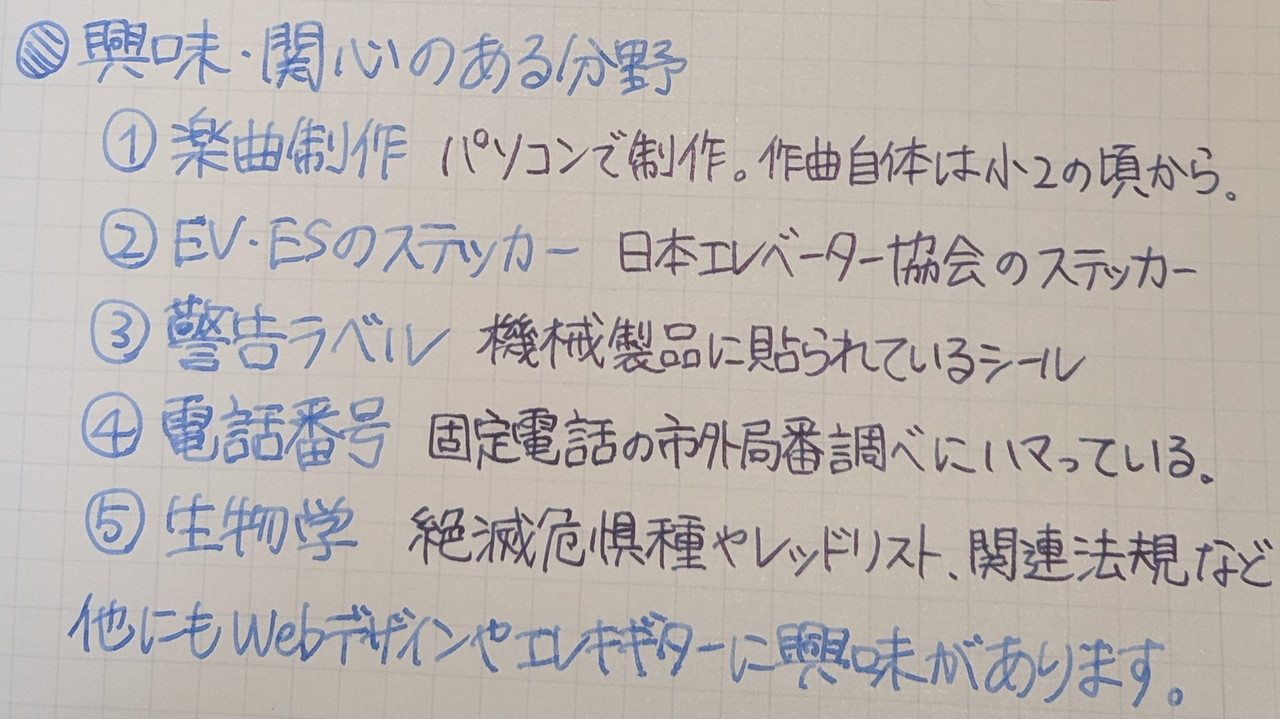 興味・関心のある分野
① 楽曲制作 パソコンで制作。作曲自体は小2の頃から。
② EV・ESのステッカー 日本エレベーター協会のステッカー
③ 警告ラベル 機械製品に貼られているシール
④ 電話番号 固定電話の市外局番調べにハマっている。
⑤ 生物学 絶滅危惧種やレッドリスト、関連法規など
他にもWebデザインやエレキギターに興味があります。